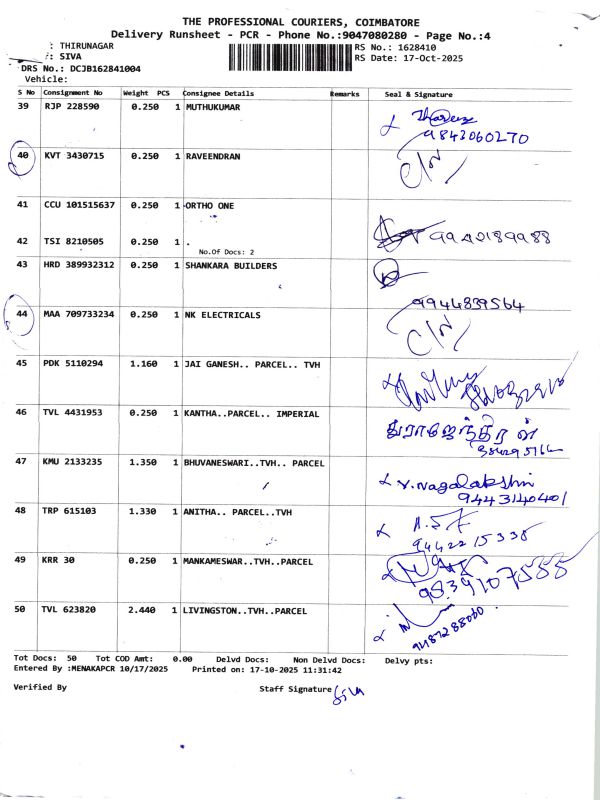 THE PROFESSIONAL COURIERS, COIMBATORE
Delivery Runsheet - PCR - Phone No.:9047080280 - Page No.:4
: THIRUNAGAR RS No.: 1628410
: SIVA RS Date: 17-Oct-2025
DRS No.: DCJB162841004
Vehicle:
S No Consignment No Weight PCS Consignee Details Remarks Seal & Signature
39 RJP 228590 0.250 1 MUTHUKUMAR
9843060270
40 KVT 3430715 0.250 1 RAVEENDRAN
C/N
41 CCU 101515637 0.250 1 ORTHO ONE
42 TSI 8210505 0.250 1 . 9942189988
No.Of Docs: 2
43 HRD 389932312 0.250 1 SHANKARA BUILDERS
9944839564
44 MAA 709733234 0.250 1 NK ELECTRICALS
C/N
45 PDK 5110294 1.160 1 JAI GANESH.. PARCEL.. TVH
46 TVL 4431953 0.250 1 KANTHA..PARCEL.. IMPERIAL
துராஜேந்திரன்
47 KMU 2133235 1.350 1 BHUVANESWARI..TVH.. PARCEL
V.Nagalakshmi
9443140401
48 TRP 615103 1.330 1 ANITHA.. PARCEL..TVH
9442215335
49 KRR 30 0.250 1 MANKAMESWAR..TVH..PARCEL
50 TVL 623820 2.440 1 LIVINGSTON..TVH..PARCEL
Tot Docs: 50 Tot COD Amt: 0.00 Delvd Docs: Non Delvd Docs: Delvy pts:
Entered By :MENAKAPCR 10/17/2025 Printed on: 17-10-2025 11:31:42
Verified By Staff Signature Siva